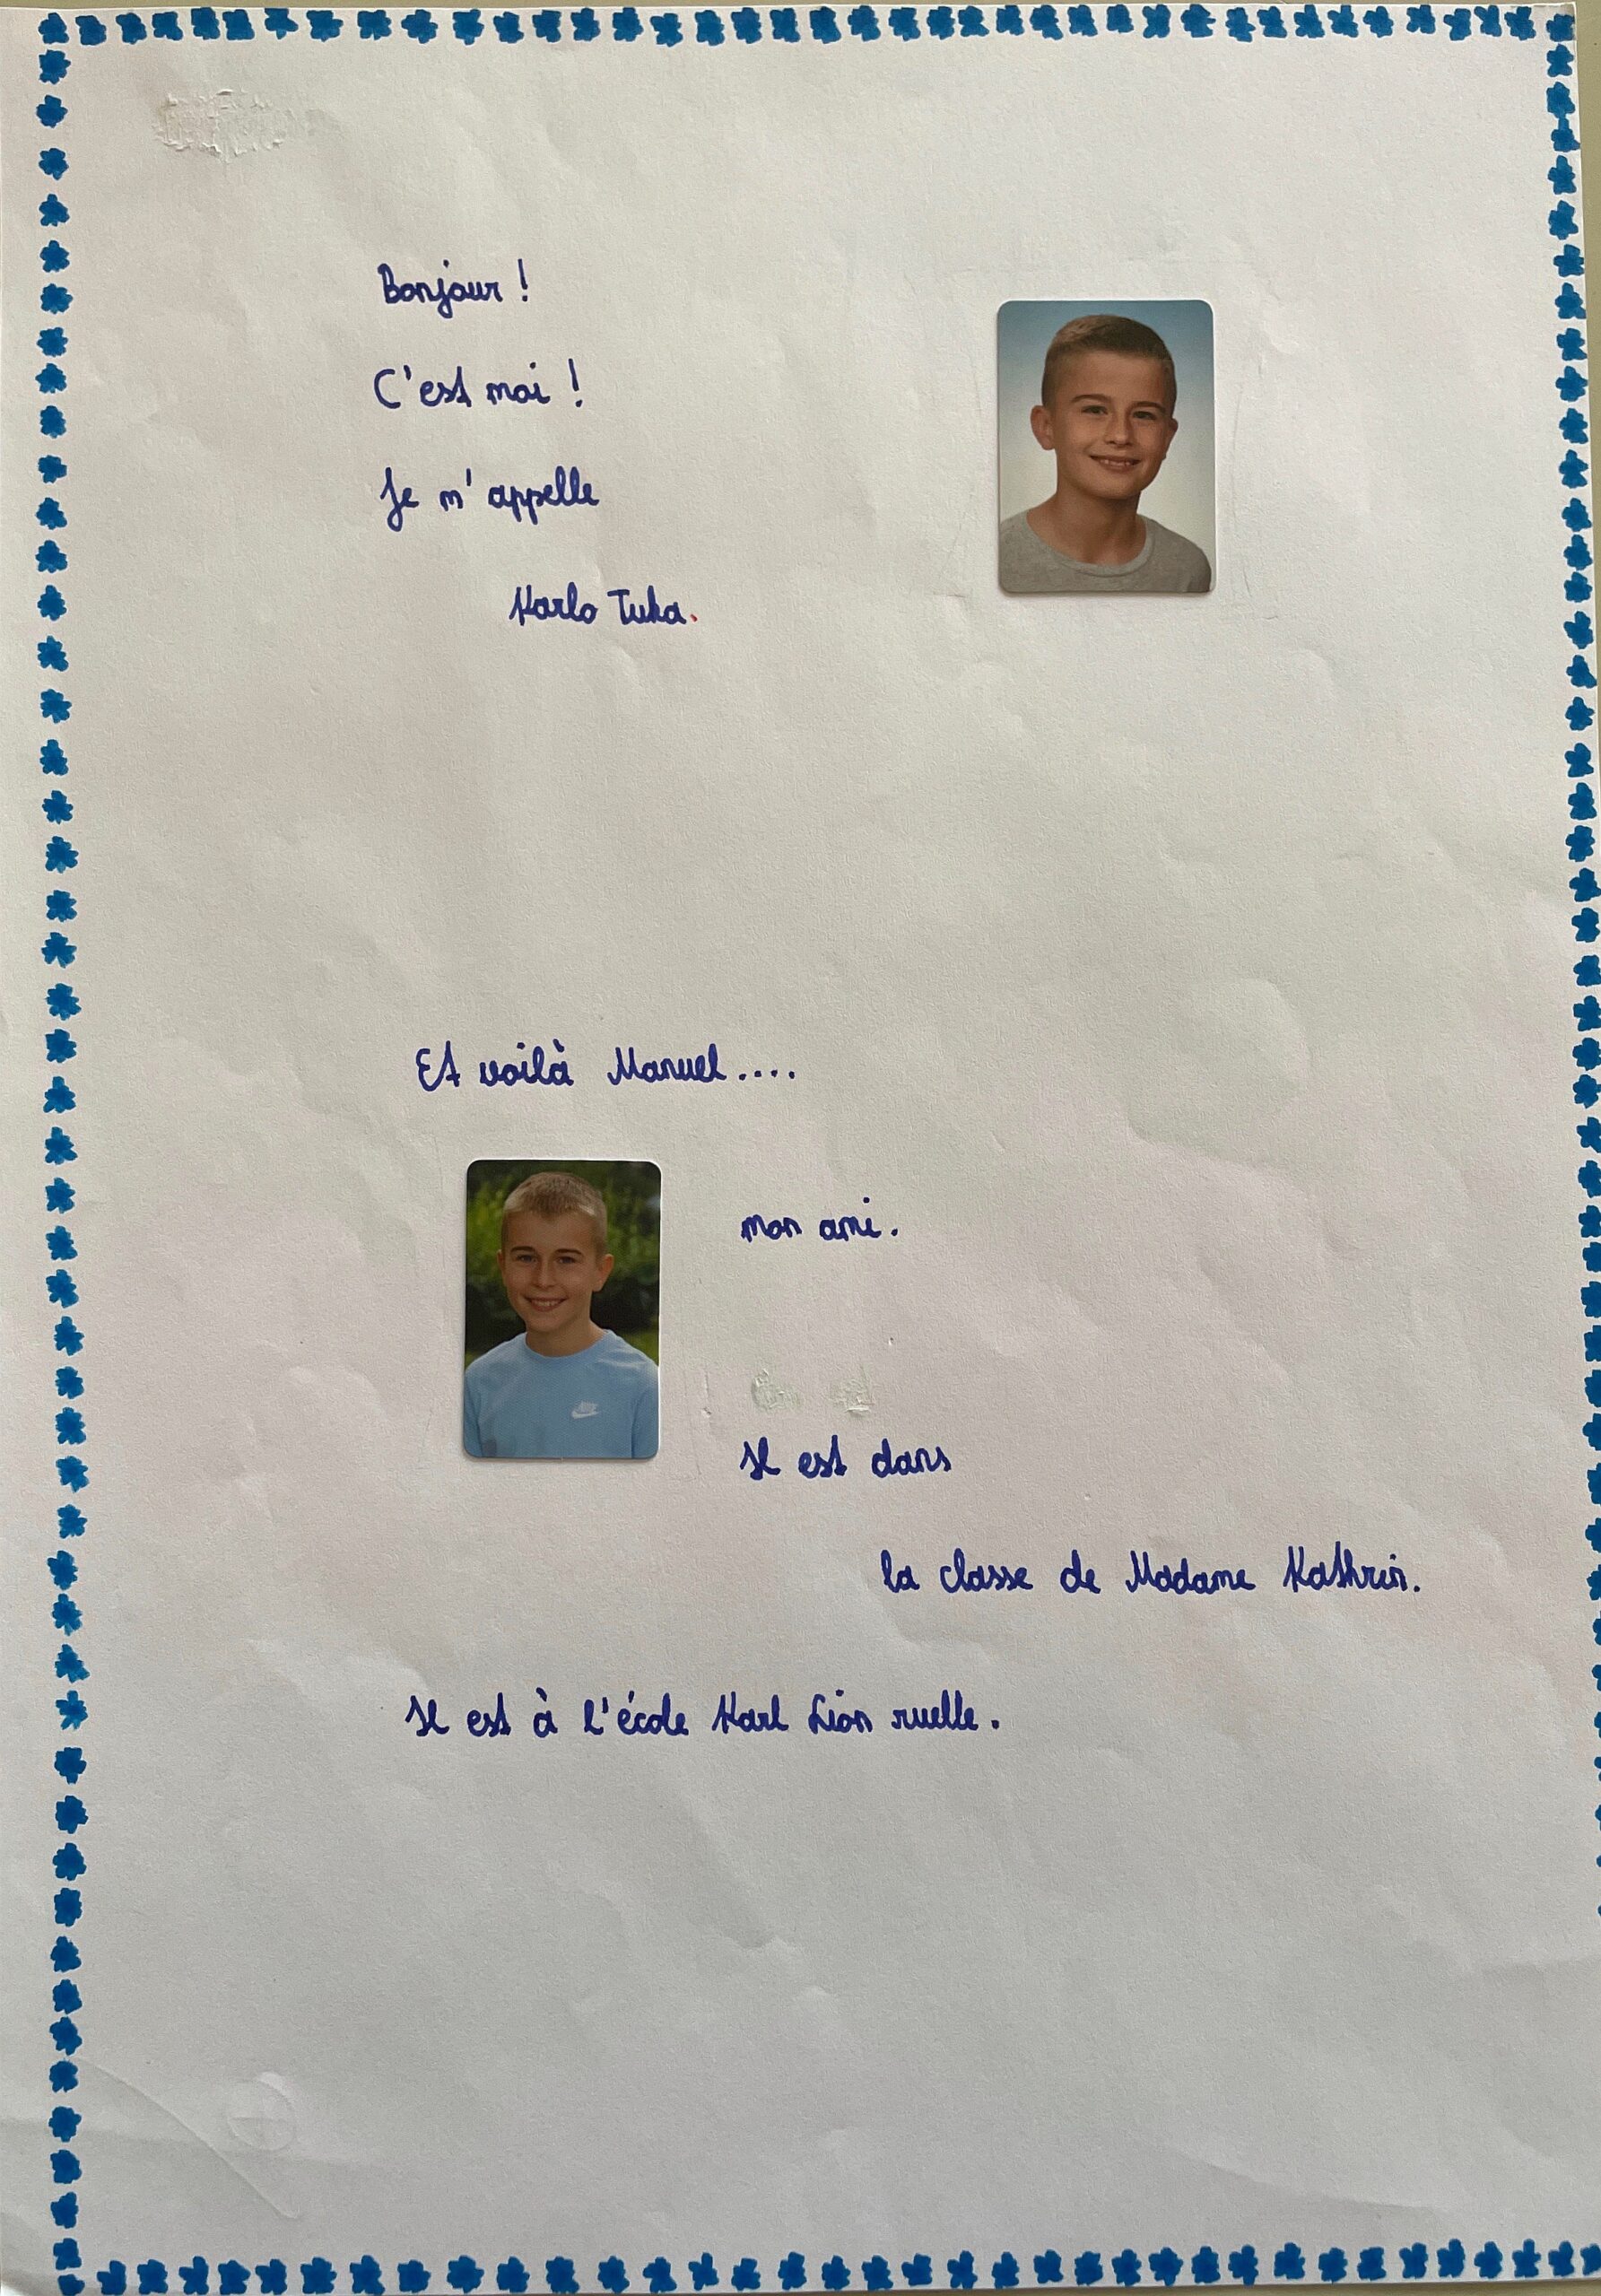 Bonjour !
C'est moi !
Je m'appelle
Karlo Tuka.
Et voilà Manuel....
mon ami.
Il est dans
la classe de Madame Kathrin.
Il est à l'école Karl Lion ruelle.